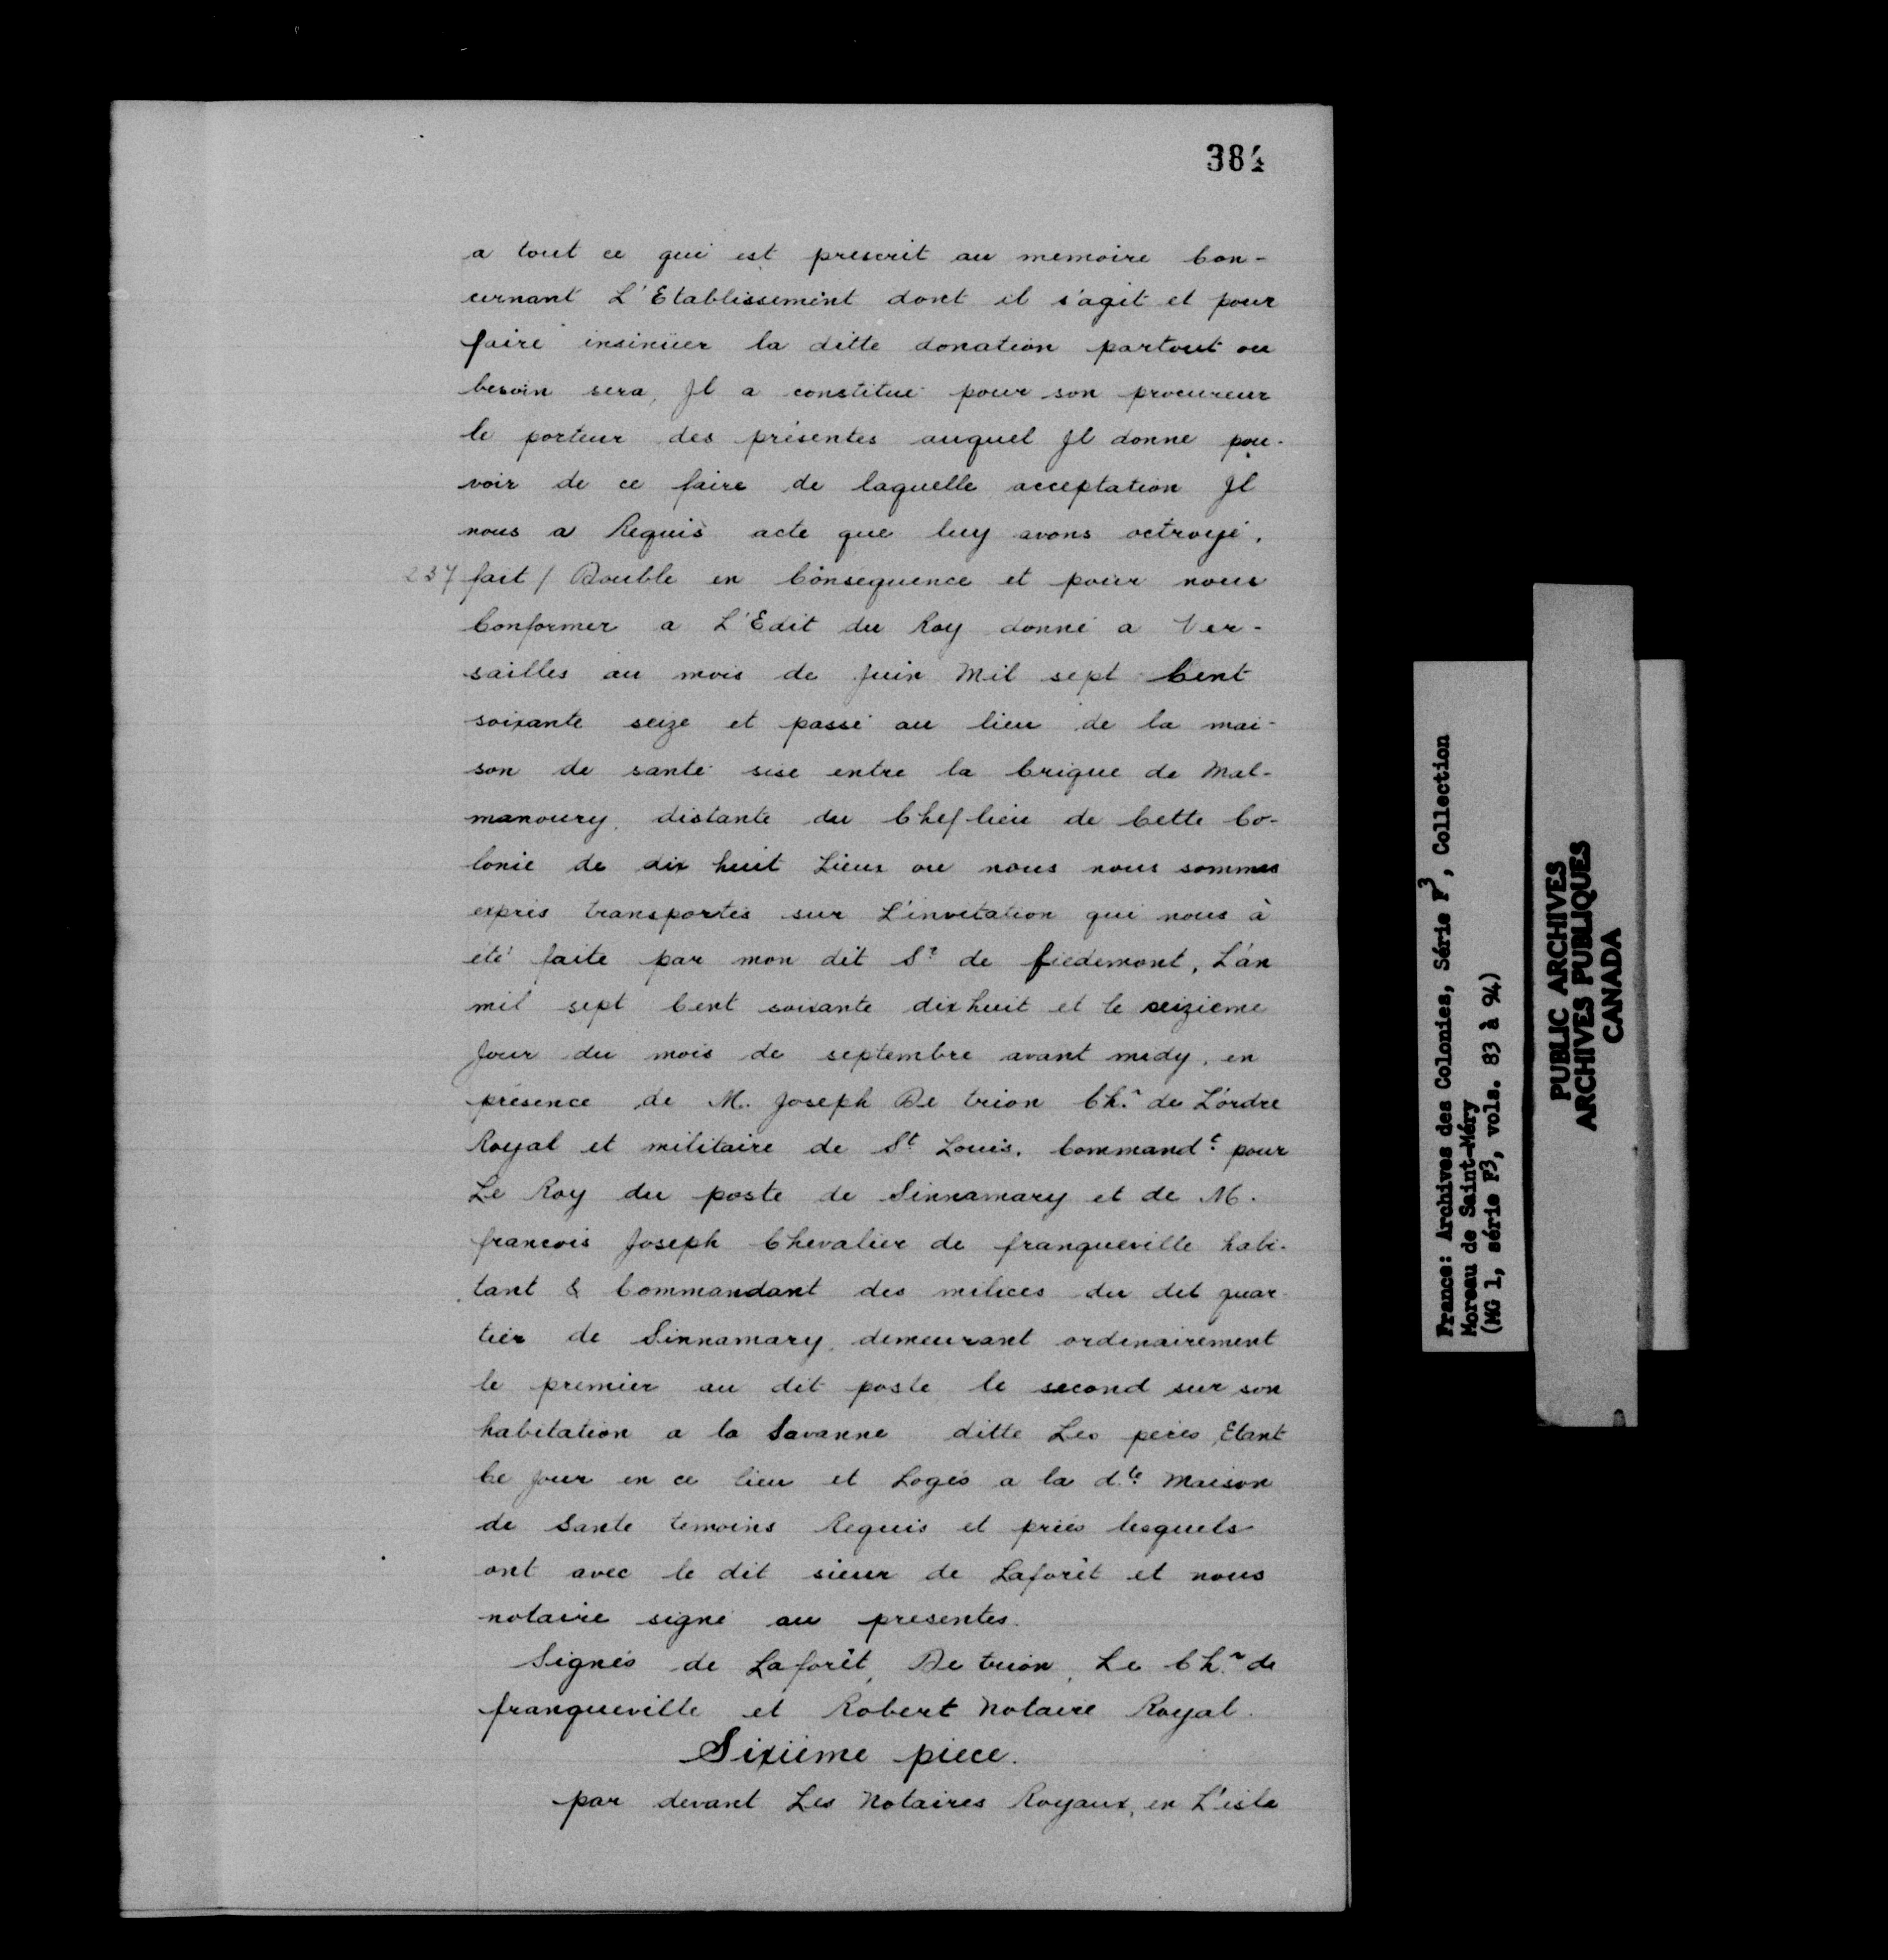 384
a tout ce qui est prescrit au memoire Con-
cernant L'Etablissement dont il s'agit et pour
faire insinüer la ditte donation partout ou
besoin sera, Jl a constitué pour son procureur
le porteur des présentes auquel Jl donne pou-
voir de ce faire de laquelle acceptation Jl
nous a Requis acte que luy avons octroyé.
237 fait / Double en Consequence et pour nous
Conformer a L'Edit du Roy donné a Ver-
sailles au mois de Juin Mil sept Cent
soixante seize et passé au lieu de la mai-
son de santé sise entre la Crique de Mal-
manoury, distante du Chef lieu de Cette Co-
lonie de dix huit Lieux ou nous nous sommes
exprès transportés sur L'invitation qui nous à
été faite par mon dit Sr de fiedmont, L'an
mil sept Cent soixante dix huit et le seizieme
Jour du mois de septembre avant midy, en
présence de M. Joseph De trion Chr de L'ordre
Royal et militaire de St Louis, Commandt pour
Le Roy du poste de Sinnamary et de M.
francois Joseph Chevalier de franqueville habi-
tant & Commandant des milices du dit quar-
tier de Sinnamary, demeurant ordinairement
le premier au dit poste, le second sur son
habitation a la Savanne ditte Les peres, Etant
Ce Jour en ce lieu et Logés a la dte Maison
de Santé temoins Requis et priés lesquels
ont avec le dit sieur de Laforêt et nous
notaire signé au presentes.
Signés de Laforêt, De trion, Le Chr de
franqueville et Robert Notaire Royal.
Sixiéme piece.
par devant Les Notaires Royaux, en L'isle
France: Archives des Colonies, Série F3, Collection
Moreau de Saint-Méry
(MG 1, série F3, vols. 83 à 94)
PUBLIC ARCHIVES
ARCHIVES PUBLIQUES
CANADA